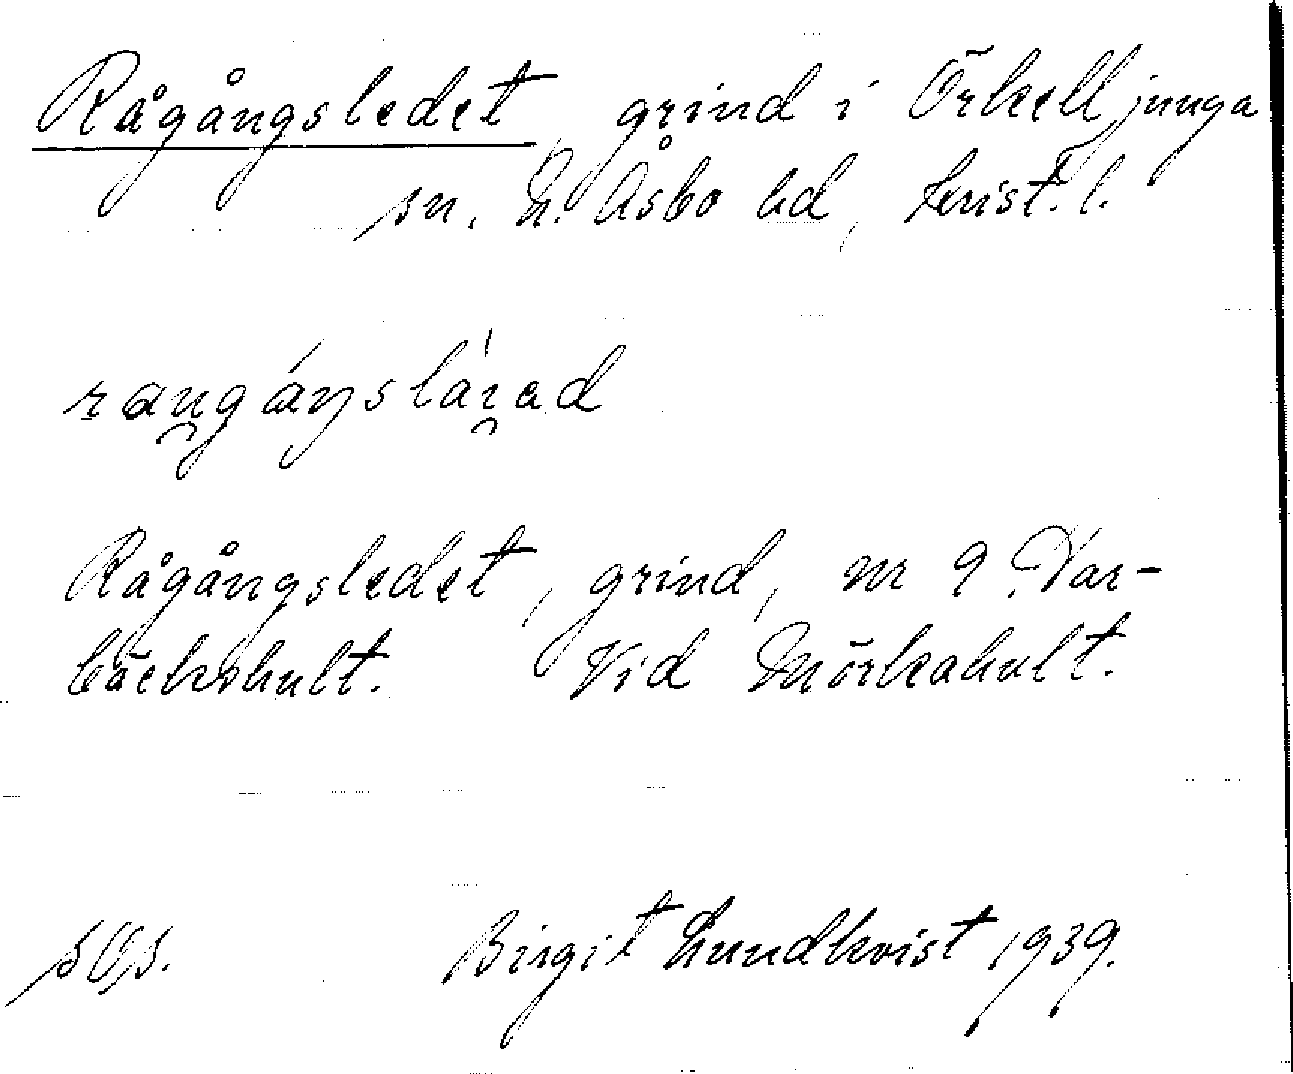 Rågångsledet, grind i Örkelljunga
sn. N. Åsbo hd, Krist. l.
Rågångsledet, grind, nr 9 Var-
bäckshult. Vid Mörkahult.
sGs. Birgit Lundkvist 1939.